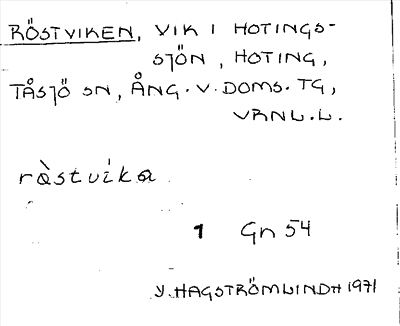 RÖSTVIKEN, VIK I HOTINGS-
SJÖN, HOTING,
TÅSJÖ SN, ÅNG. V. DOMS. TG,
VRNL. L.
ròstvika
1 Gn 54
Y. HAGSTRÖMLINDH 1971